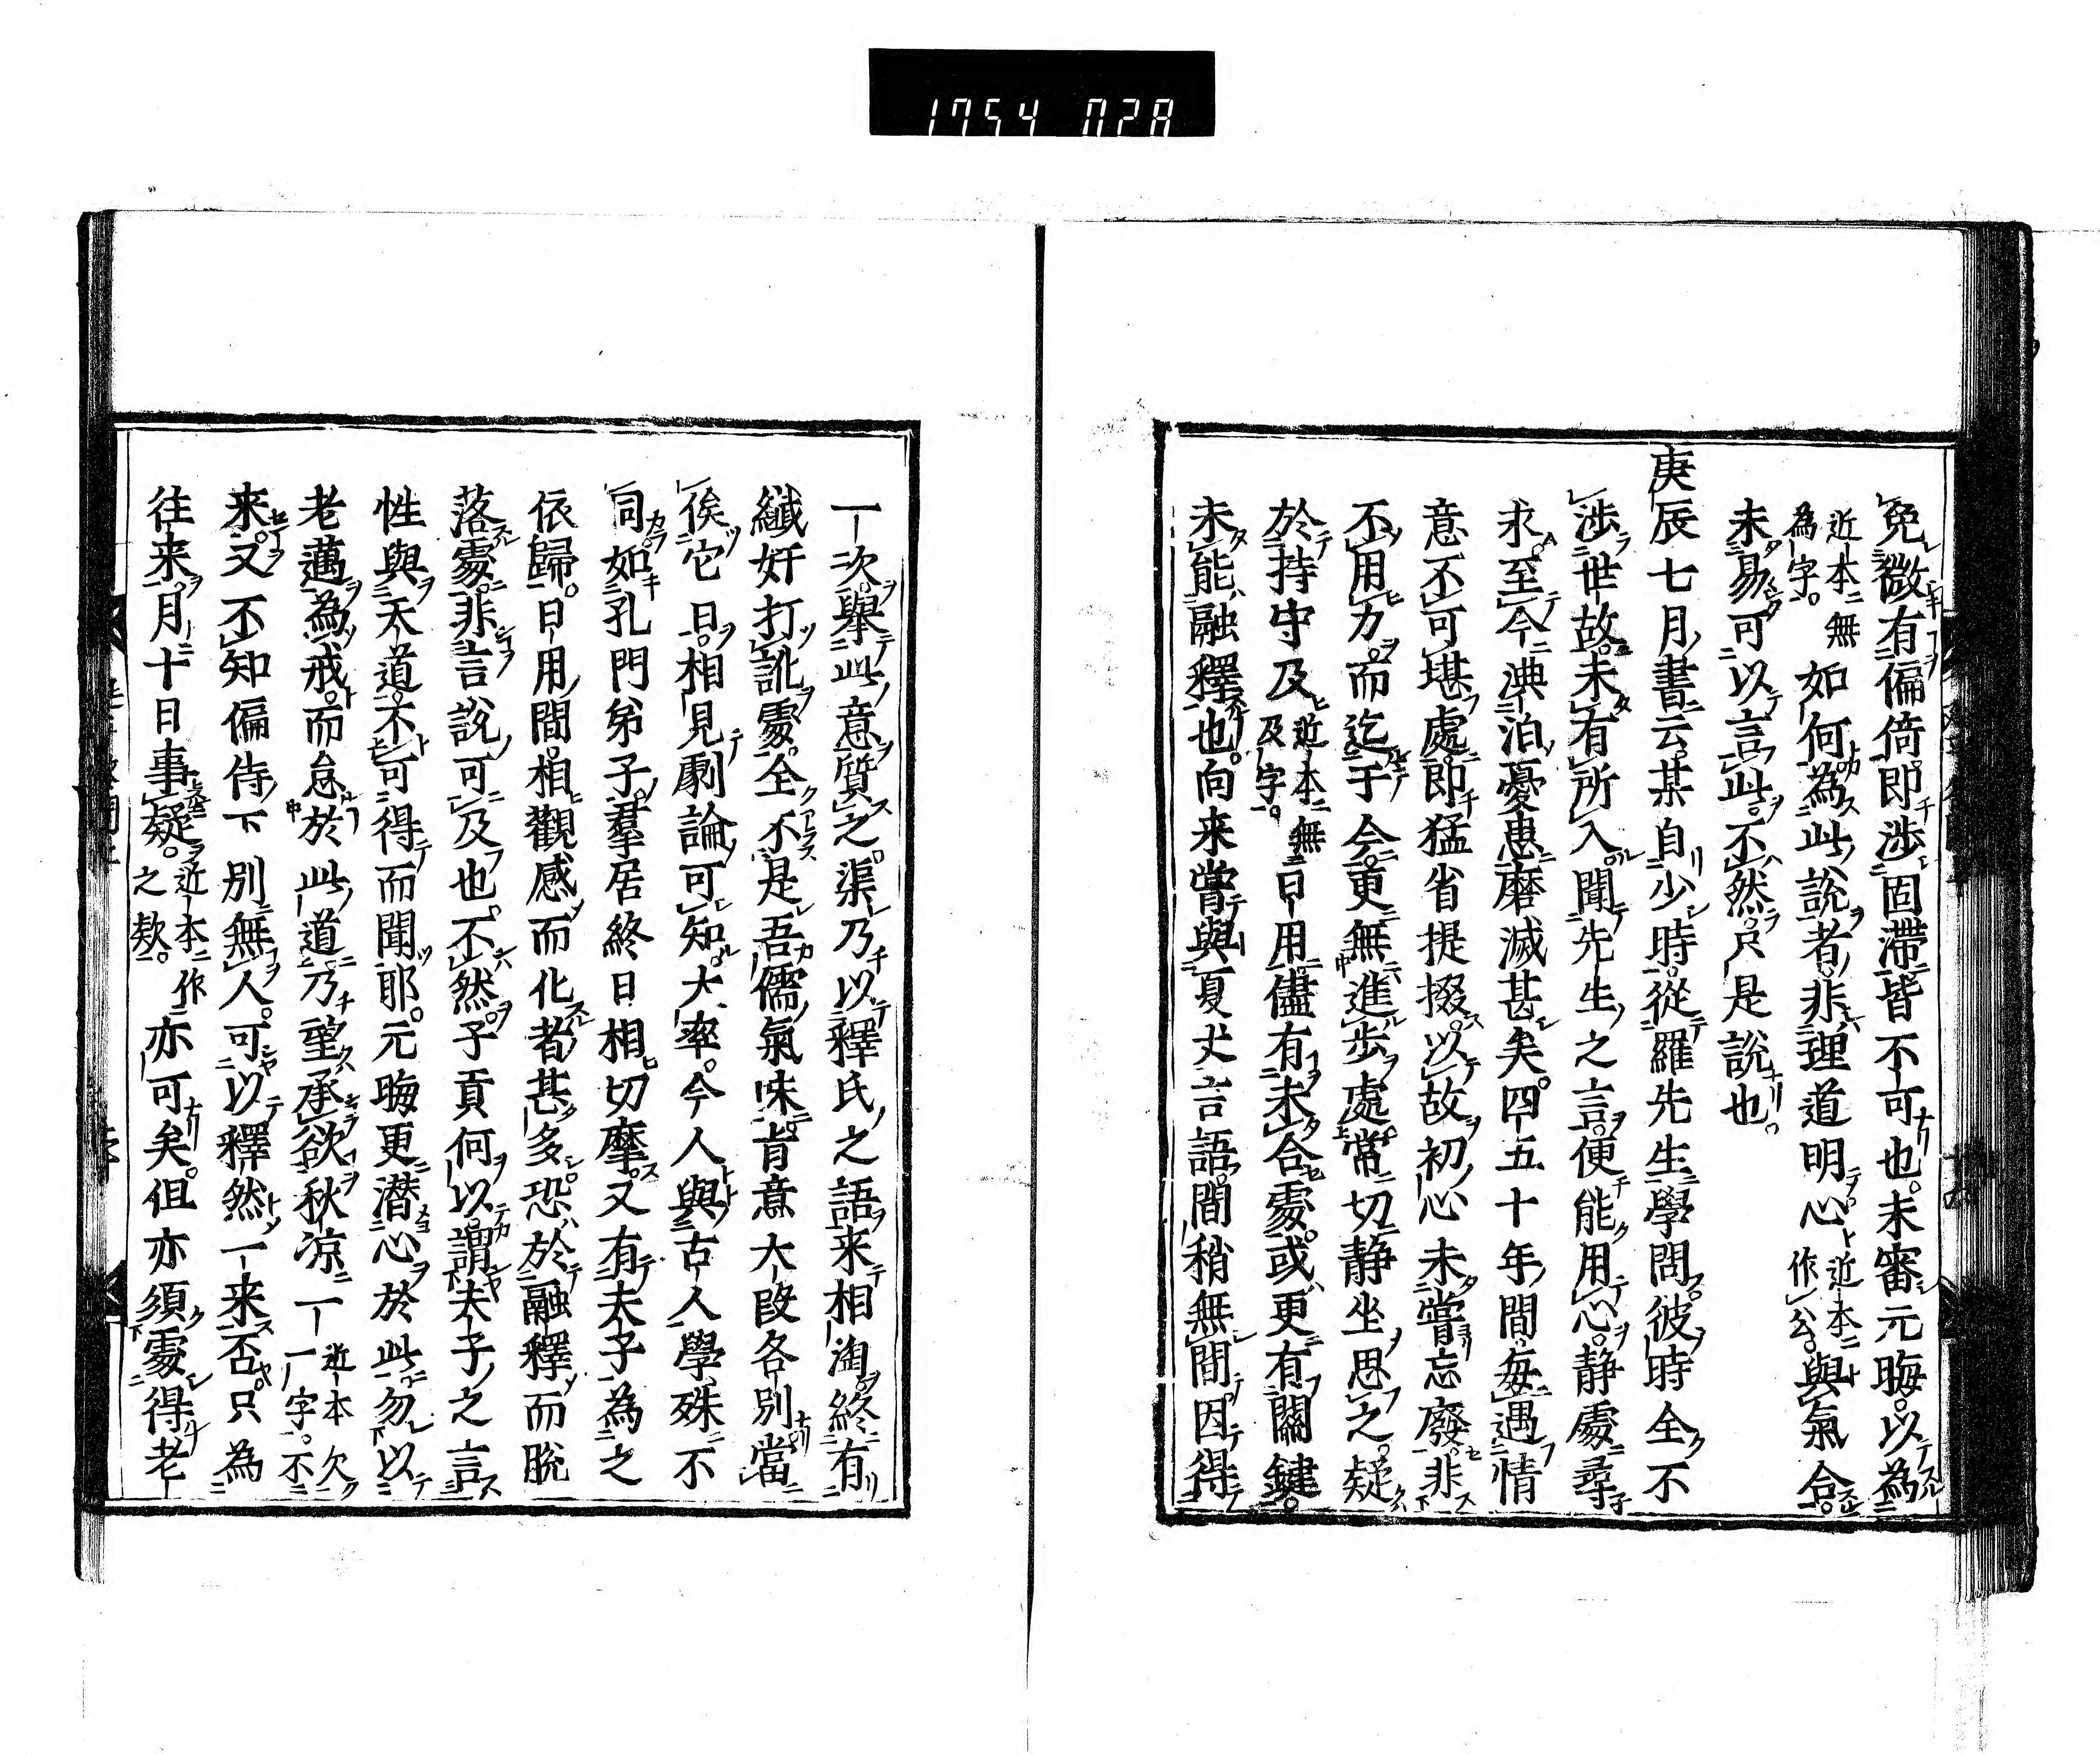 1754 028
免微有偏倚即渉固滯皆不可也未審元晦以為
近本無為字如何為此說者非理道明心近本作公與氣合
未易可以言此不然只是說也
庚辰七月書云某自少時從羅先生學問彼時全不
渉世故未有所入聞先生之言便能用心靜處尋
求至今淟汨憂患磨滅甚矣四五十年間每遇情
意不可堪處即猛省提掇以故初心未嘗忘廢非
不用力而迄于今更無進步處常切靜坐思之疑
於持守及近本無及字日用儘有未合處或更有關鍵
未能融釋也向来嘗與夏丈言語間稍無間因得
一次舉此意質之渠乃以釋氏之語来相淘終有
纎奸打訛處全不是吾儒氣味旨意大段各別當
俟它日相見劇論可知大率今人與古人學殊不
同如孔門弟子羣居終日相切摩又有夫子為之
依歸日用間相觀感而化者甚多恐於融釋而脱
落處非言說可及也不然子貢何以謂夫子之言
性與天道不可得而聞耶元晦更潜心於此勿以
老邁為戒而怠於此道乃望承欲秋凉一近本欠一字不
来又不知偏侍下別無人可以釋然一来否只為
往来月十日事疑近本作之欵亦可矣但亦須處得老